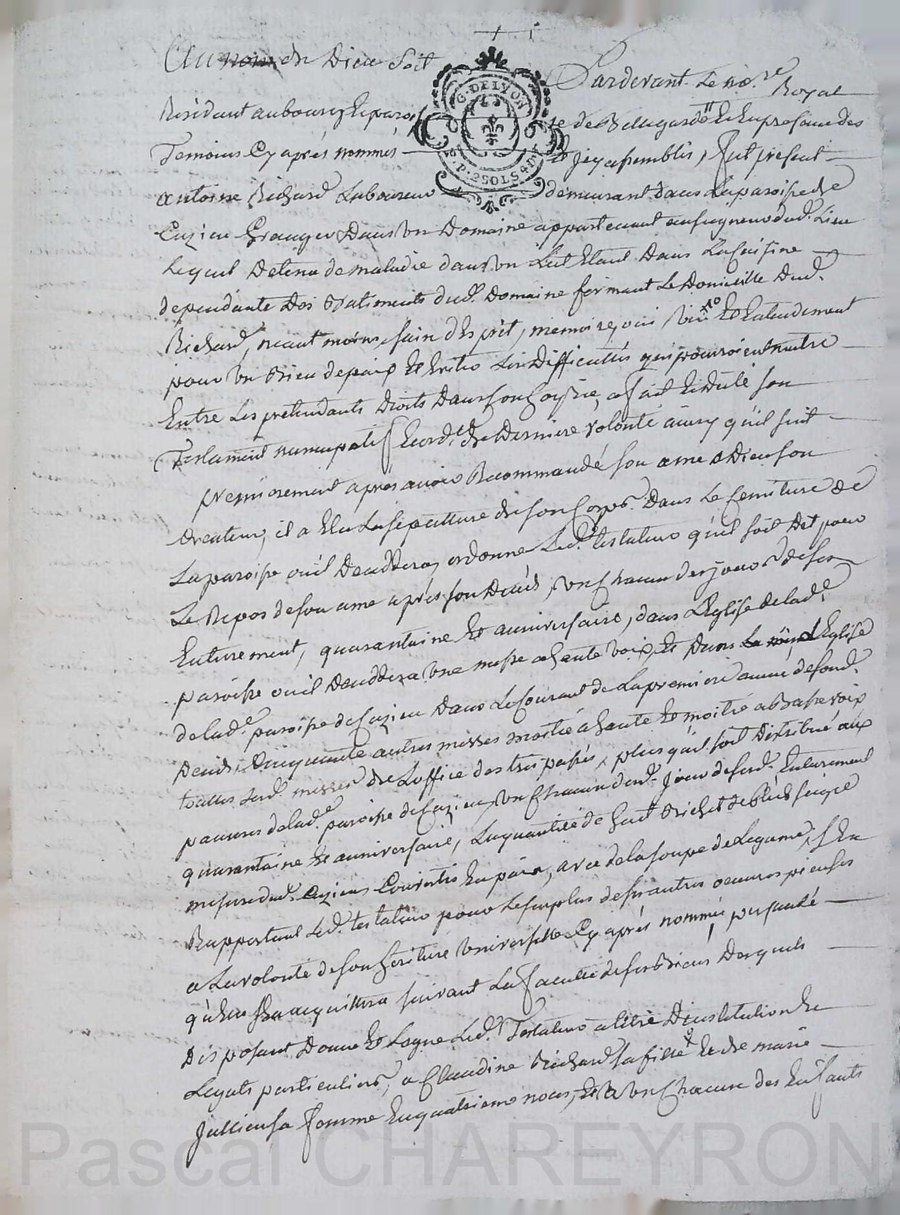 Au nom de Dieu Soit
G. DE LYON
P.P. 2 SOLS 4 D
Pardevant Le no.re Royal
Résidant au bourg Et paroisse de Bellegarde Et En présance des
Temoins Cy après nommés Et Icy assemblés, fut présent
antoine Richard Laboureur demeurant dans La paroisse de
Cuzieu Granger Dans un Domaine appartenant au seigneur dud. Lieu
Lequel Detenu de maladie dans un Lit Etant Dans La Cuisine
dependante Des Batiments dud. Domaine formant Le Domicille Dud.
Richard, neant moins sain d'Esprit, memoire, ouie Et Entendement
pour un Bien de paix Et Eviter Les Difficultés qui pouroient naitre
Entre Les prétendants Droits Dans son hoirie, a fait Et Dicté son
Testament nuncupatif Et ord.e de Derniere volonté ainsy qu'il suit
premierement après avoir Recommandé son ame a Dieu son
Createur, il a Elu La sépulture de son Corps Dans Le Cemitiere de
La paroisse ou il Deceddera, ordonne Led. testateur qu'il soit Dit pour
Le Repos de son ame après son Décéds, un Chacun des jours de son
Enterement, quarantaine Et anniversaire, dans L'Eglise de lad.
paroisse ou il Deceddera une messe a haute voix, Et Dans L'Eglise
de lad. paroisse de Cuzieu Dans Le Courant de La premiere année de sond.
Deceds, Cinquante autres messes moitié a haute Et moitié a basse voix
toutes Lesd. messes De L'office des trépassés, plus qu'il soit Distribué aux
pauvres de lad. paroisse de Cuzieu, un Chacun desd. jours de sesd. Enterement
quarantaine Et anniversaire, La quantité de huit Bichet de bled seigle
mesure dud. Cuzieu Convertis En pain, avec de la soupe de Legume, s'En
Rapportant Led. testateur pour Le surplus de ses autres oeuvres pieuses
a La volonté de son héritiere universelle Cy après nommée, persuadé
qu'Elle s'En acquittera suivant La faculté de ses Biens Desquels
Disposant Donne Et Legue Led. Testateur a titre D'institution Et
Legats particuliers, a Claudine Richard sa fille Et de marie
Jullien sa femme En quatrieme noces, Et a un Chacun des Enfants
Pascal CHAREYRON